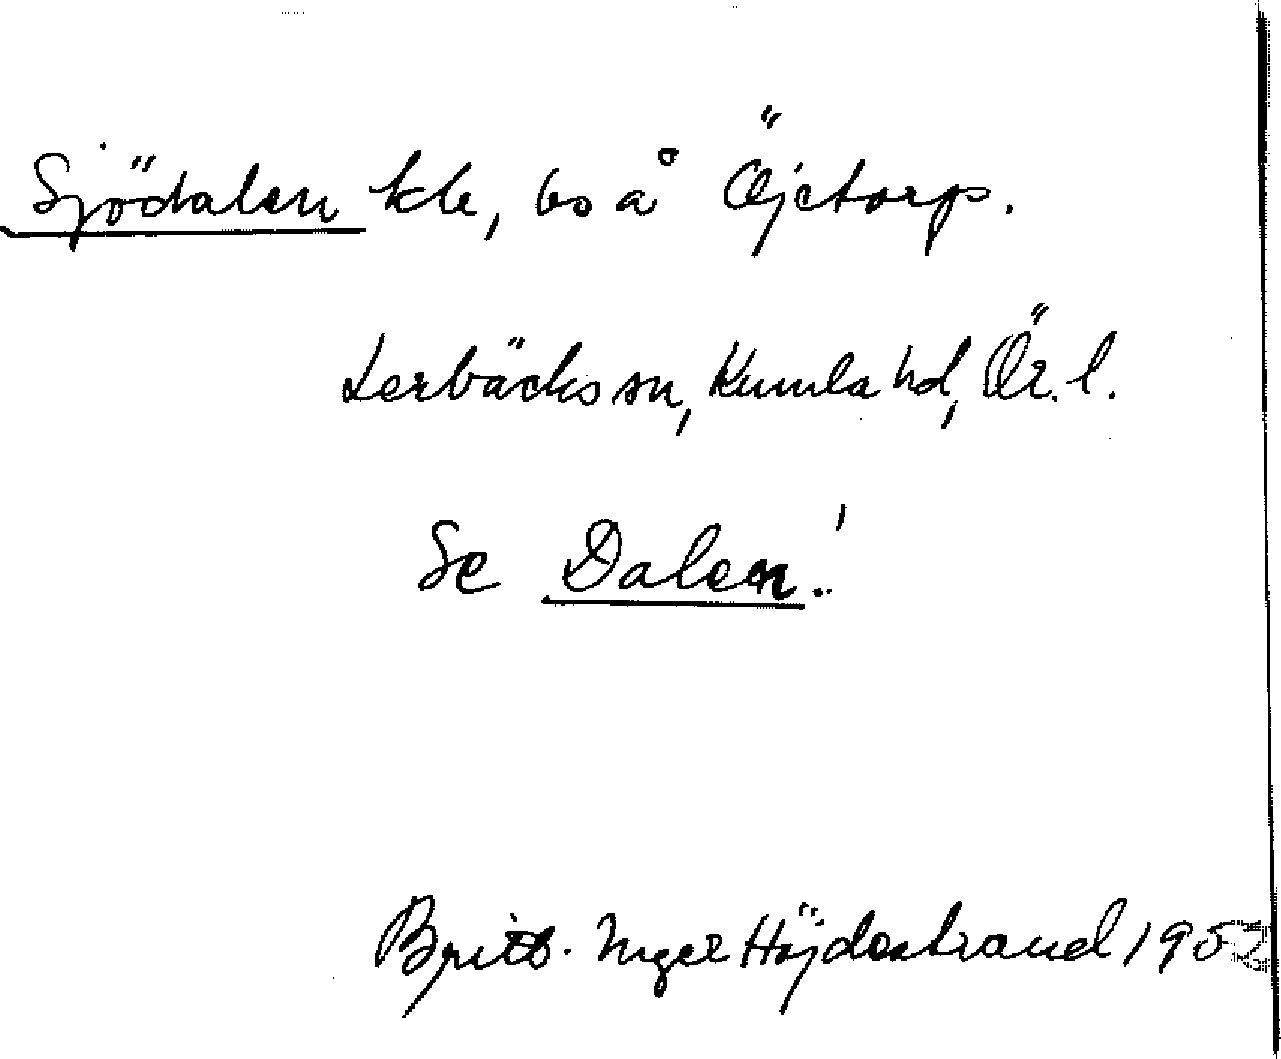 Sjödalen kle, bs å Öjetorp.
Lerbäcks sn, Kumla hd, Ör. l.
Se Dalen!
Britt-Inger Höjdestrand 195